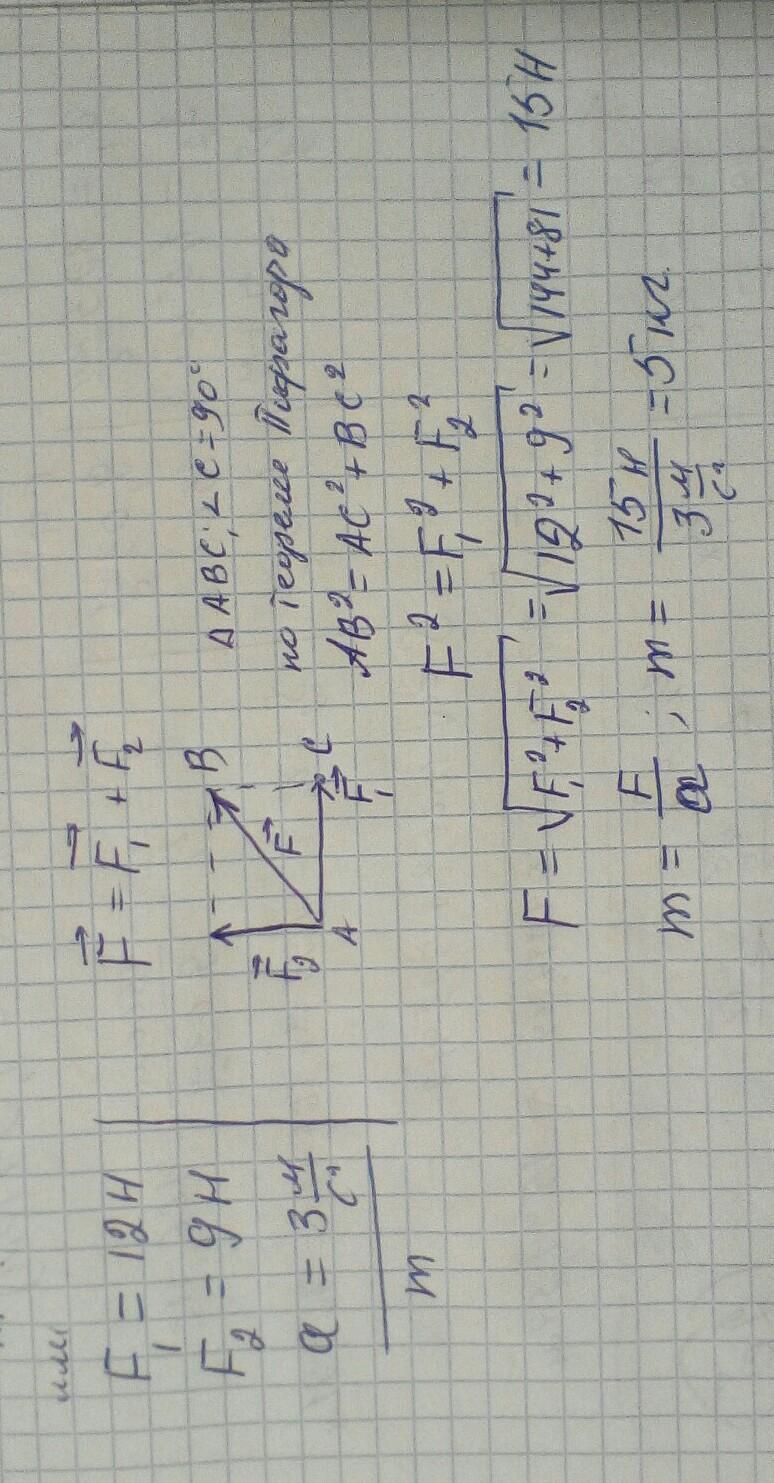 или
F₁ = 12 Н
F₂ = 9 Н
a = 3 м/с²
m
F⃗ = F⃗₁ + F⃗₂
F⃗₂
F⃗
B
A
C
F⃗₁
Δ ABC, ∠C = 90°
по теореме Пифагора
AB² = AC² + BC²
F² = F₁² + F₂²
F = √F₁² + F₂² = √12² + 9² = √144+81 = 15 Н
m = F/a ; m = 15 Н/3 м/с² = 5 кг